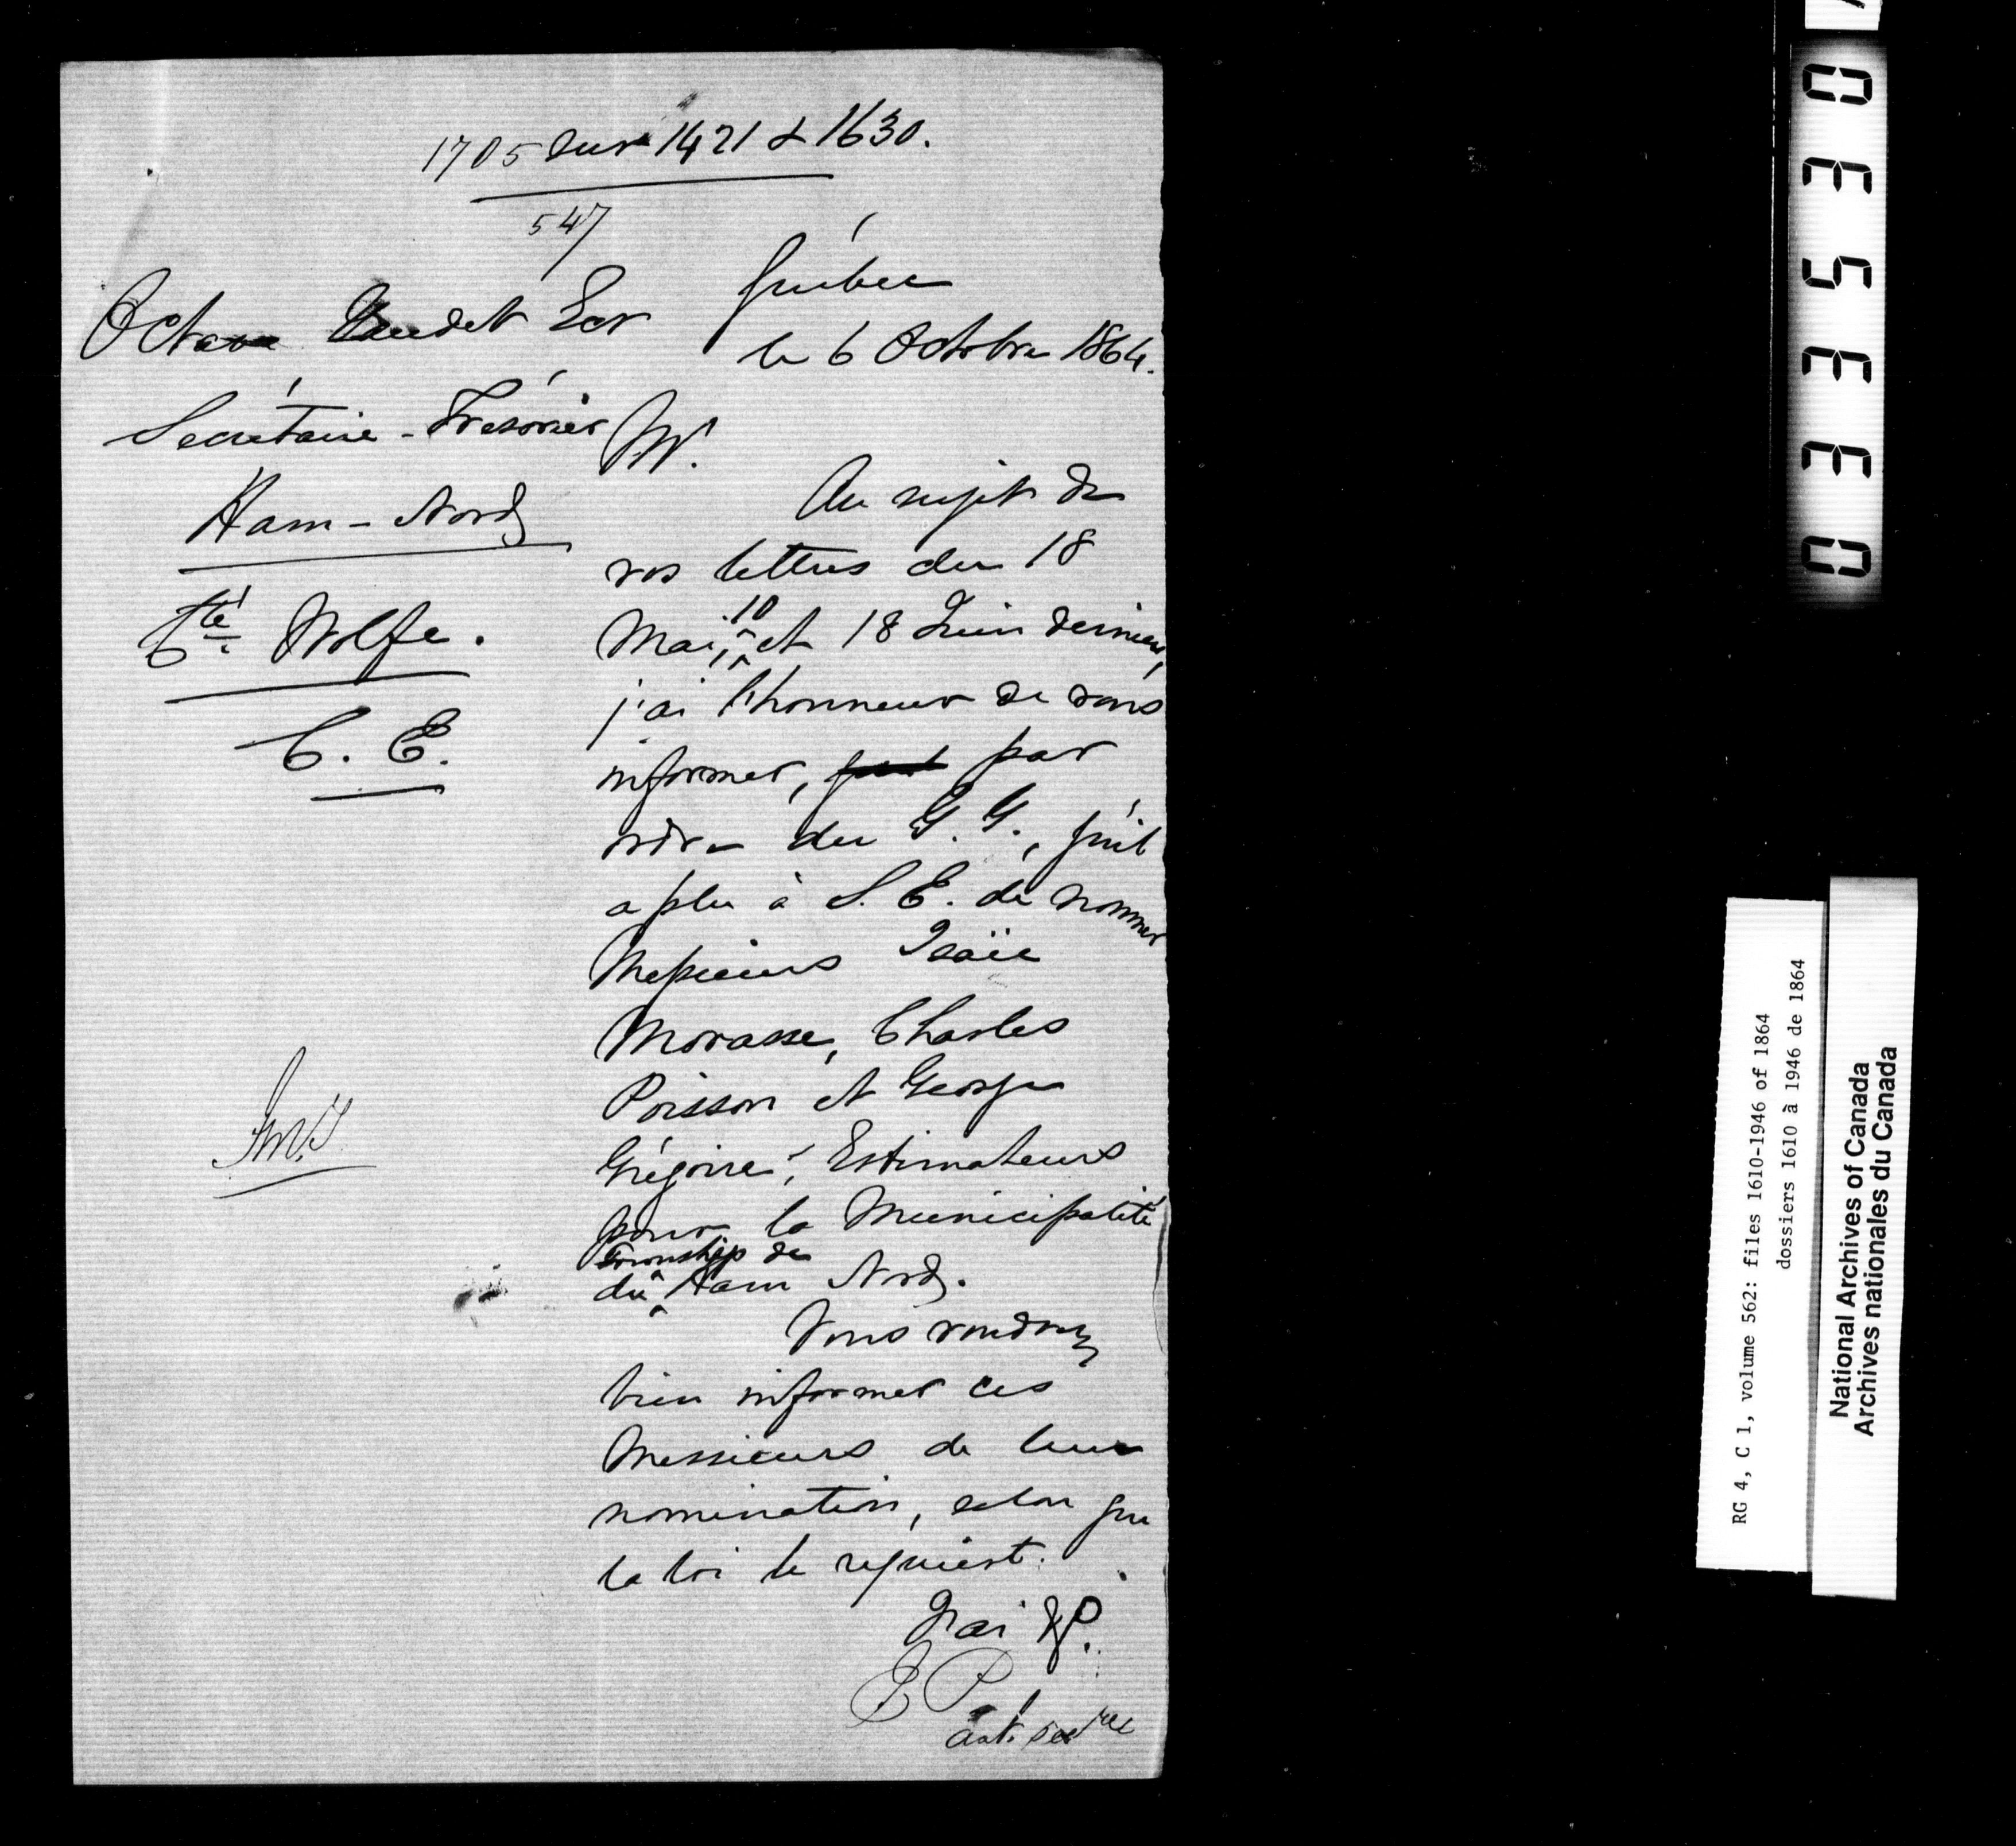 1705 sur 1421 & 1630.
547
Québec
le 6 Octobre 1864.
Octave Ecr
Secrétaire-Trésorier
Ham-Nord
Cté Wolfe.
C. E.
M.
Au sujet de
vos lettres du 18
Mai, 10 et 18 Juin derniers,
j'ai l'honneur de vous
informer, par
ordre du G. G., qu'il
a plu à S. E. de nommer
Messieurs Isaïe
Morasse, Charles
Poisson et George
Grégoire, Estimateurs
pour la Municipalité
du Township de Ham Nord.
Vous voudrez
bien informer ces
Messieurs de leur
nomination, selon que
la loi le requiert.
J'ai &c.
E P
RG 4, C 1, volume 562: files 1610-1946 of 1864
dossiers 1610 à 1946 de 1864
National Archives of Canada
Archives nationales du Canada
0 3 3 5 3 0